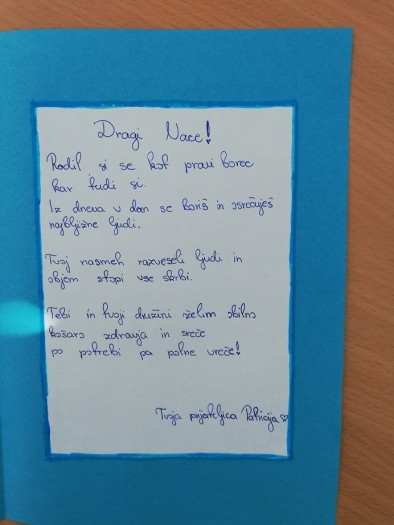 Dragi Nace!
Rodil si se kot pravi borec
kar tudi si.
Iz dneva v dan se boriš in osrečuješ
najbližne ljudi.
Tvoj nasmeh razveseli ljudi in
objem stopi vse skrbi.
Tebi in tvoji družini želim obilno
košaro zdravja in sreče
po potrebi pa polne vreče!
Tvoja prijateljica Patricija ♡